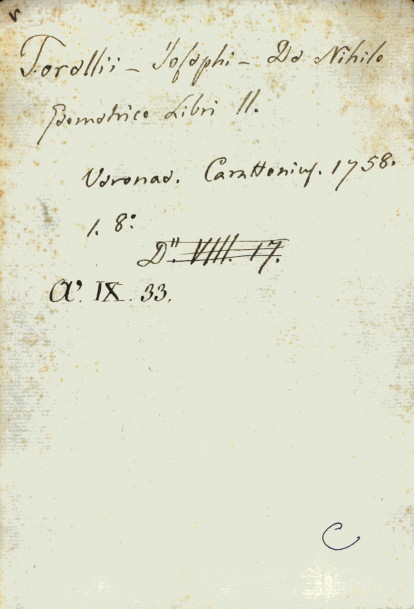 Torellii - Josephi - De Nihilo
Geometrico Libri II.
Veronae. Carattonius. 1758.
1. 8°
D". VIII. 17.
A'. IX. 33.
C